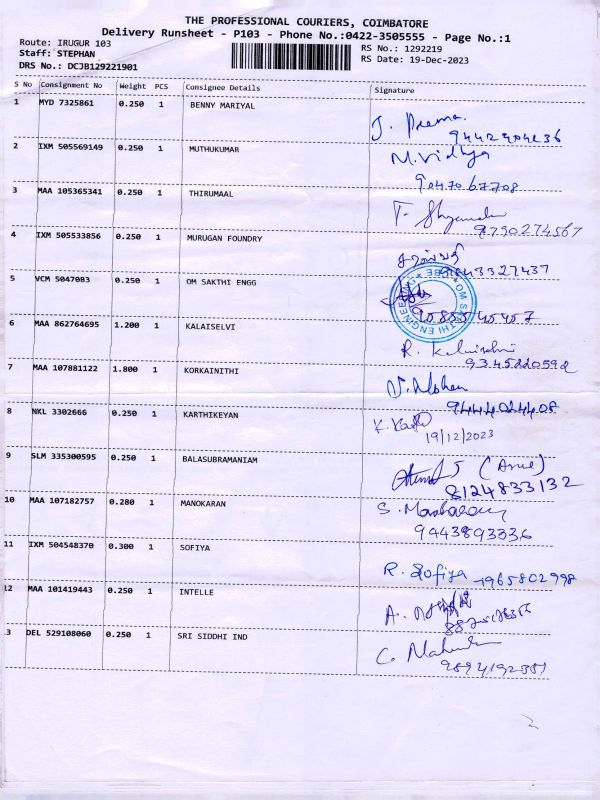 THE PROFESSIONAL COURIERS, COIMBATORE
Delivery Runsheet - P103 - Phone No.:0422-3505555 - Page No.:1
Route: IRUGUR 103
RS No.: 1292219
Staff: STEPHAN
RS Date: 19-Dec-2023
DRS No.: DCJB129221901
S No Consignment No Weight PCS Consignee Details Signature
1 MYD 7325861 0.250 1 BENNY MARIYAL
J. Prema
2 IXM 505569149 0.250 1 MUTHUKUMAR
M. Vidhya
90470 67708
3 MAA 105365341 0.250 1 THIRUMAAL
9790274567
4 IXM 505533856 0.250 1 MURUGAN FOUNDRY
5 VCM 5047083 0.250 1 OM SAKTHI ENGG
OM SAKTHI ENGINEERING
6 MAA 862764695 1.200 1 KALAISELVI
9345220592
7 MAA 107881122 1.800 1 KORKAINITHI
V. Mohan
9444024408
8 NKL 3302666 0.250 1 KARTHIKEYAN
19/12/2023
9 SLM 335300595 0.250 1 BALASUBRAMANIAM
8124833132
10 MAA 107182757 0.280 1 MANOKARAN
9443893336
11 IXM 504548370 0.300 1 SOFIYA
R. Sofiya 7965802998
12 MAA 101419443 0.250 1 INTELLE
13 DEL 529108060 0.250 1 SRI SIDDHI IND